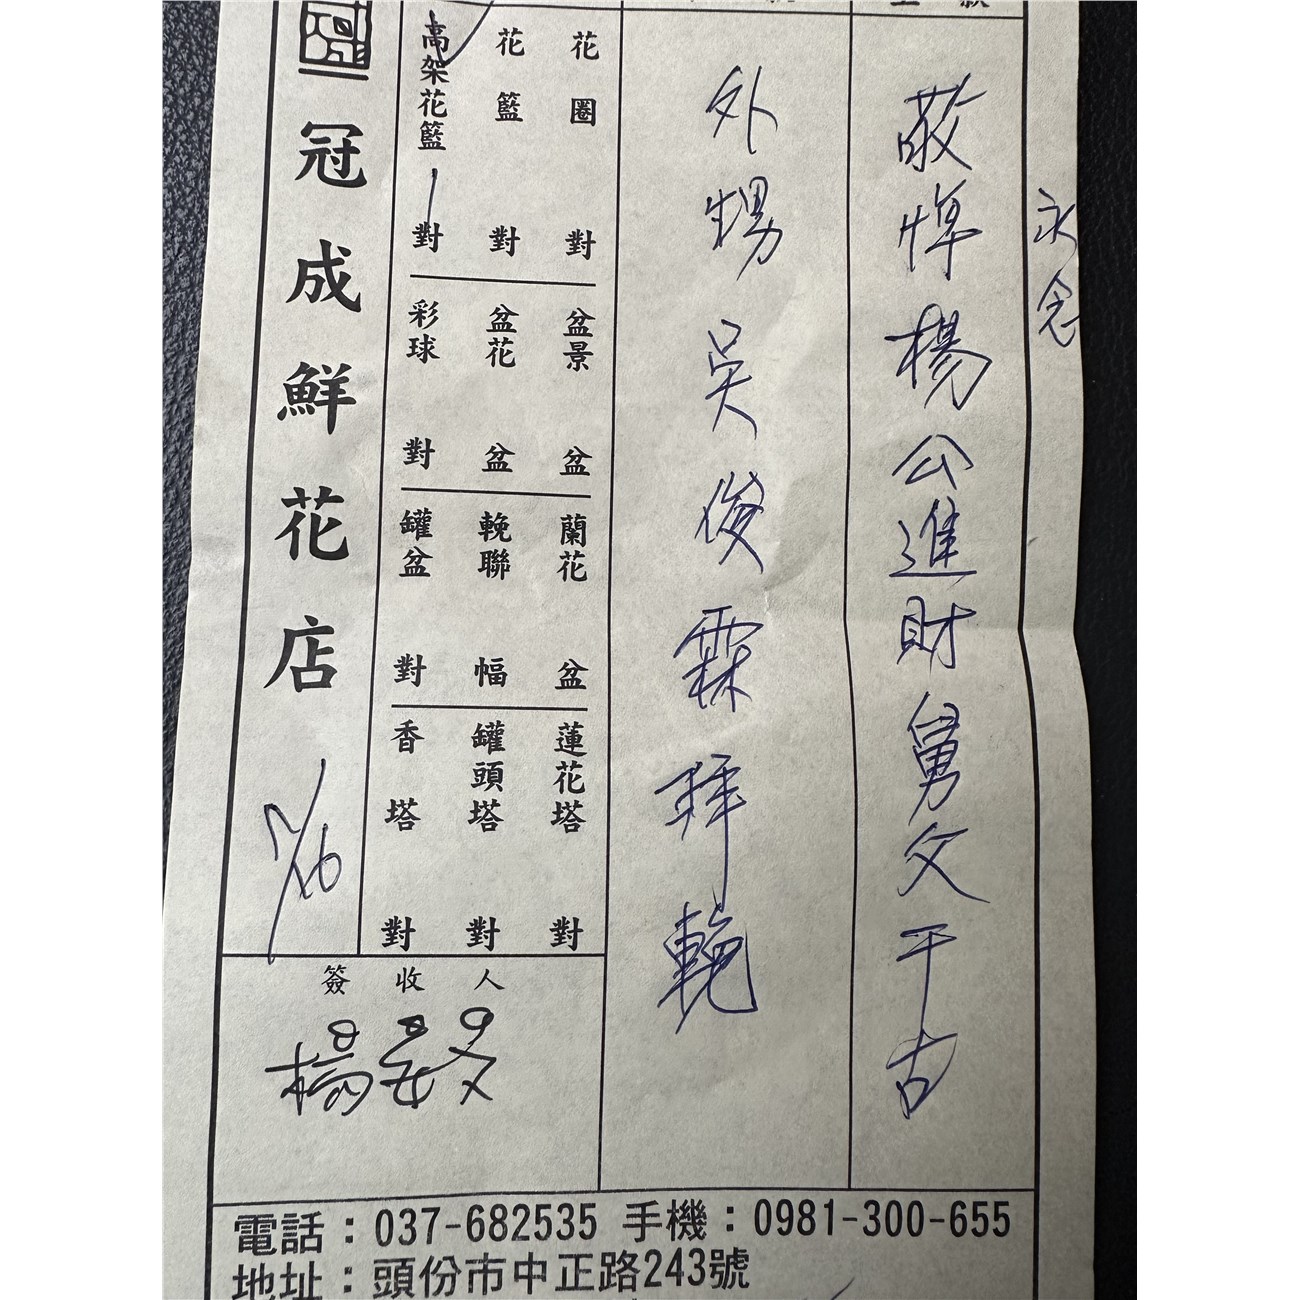 永念
敬悼楊公進財舅父千古
外甥吳俊霖拜輓
花圈 對
花籃 對
高架花籃 1 對
盆景 盆
盆花 盆
彩球 對
蘭花 盆
輓聯 幅
罐盆 對
蓮花塔 對
罐頭塔 對
香塔 對
冠成鮮花店
簽收人
電話：037-682535 手機：0981-300-655
地址：頭份市中正路243號